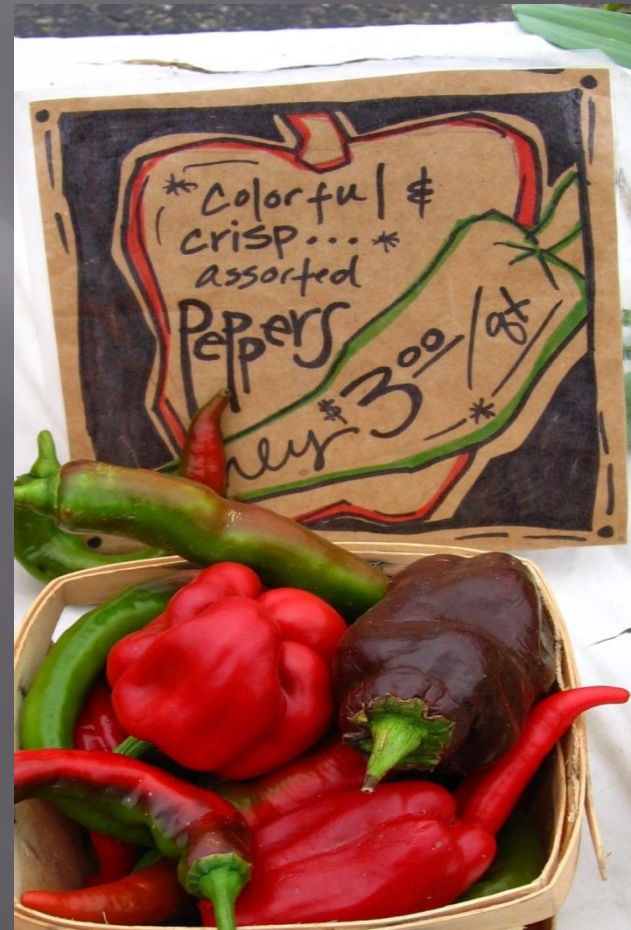 *Colorful &
crisp... *
assorted
Peppers
$3.00/qt *